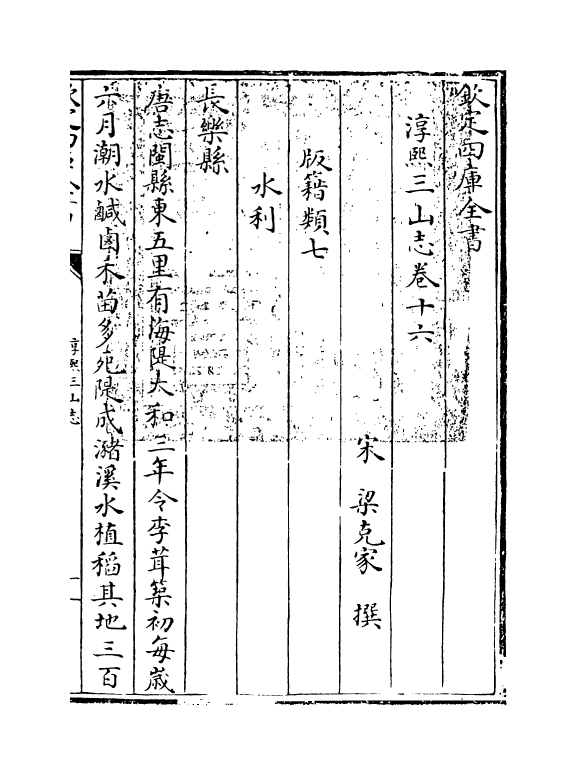 欽定四庫全書
淳熙三山志卷十六
宋　梁克家　撰
版籍類七
水利
長樂縣
唐志閩縣東五里有海隄大和三年令李茸築初每歲
六月潮水鹹鹵禾苗多死隄成瀦溪水植稻其地三百
淳熙三山志